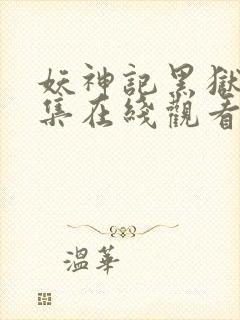 妖神記黑獄
集在綫觀看
溫華